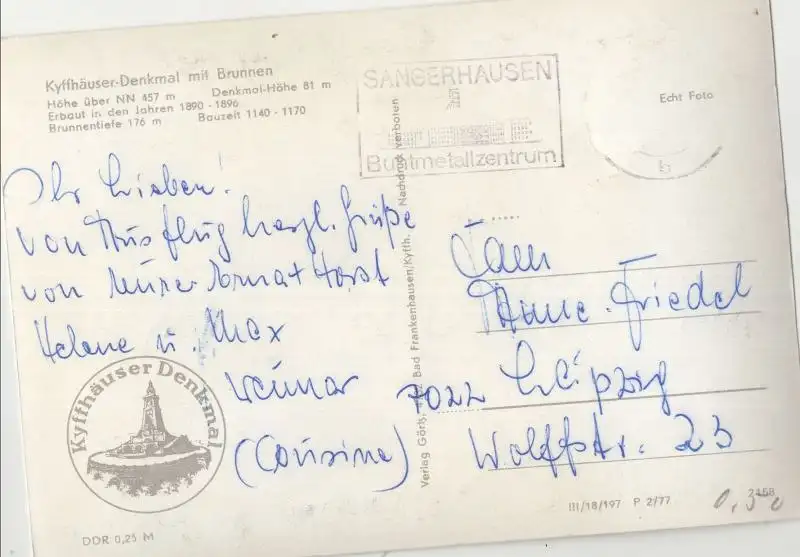 Kyffhäuser-Denkmal mit Brunnen
Höhe über NN 457 m Denkmal-Höhe 81 m
Erbaut in den Jahren 1890 - 1896
Brunnentiefe 176 m Bauzeit 1140 - 1170
SANGERHAUSEN
Buntmetallzentrum
Echt Foto
Ihr Lieben!
von Ausflug herzl. Grüße
von Horst
Helene u. Max
Weimar
(Cousine)
Kyffhäuser Denkmal
DDR 0,25 M
Verlag Bad Frankenhausen/Kyffh. Nachdruck verboten
Fam
Friedel
7022 Leipzig
Wolffstr. 23
III/18/197 P 2/77
2458